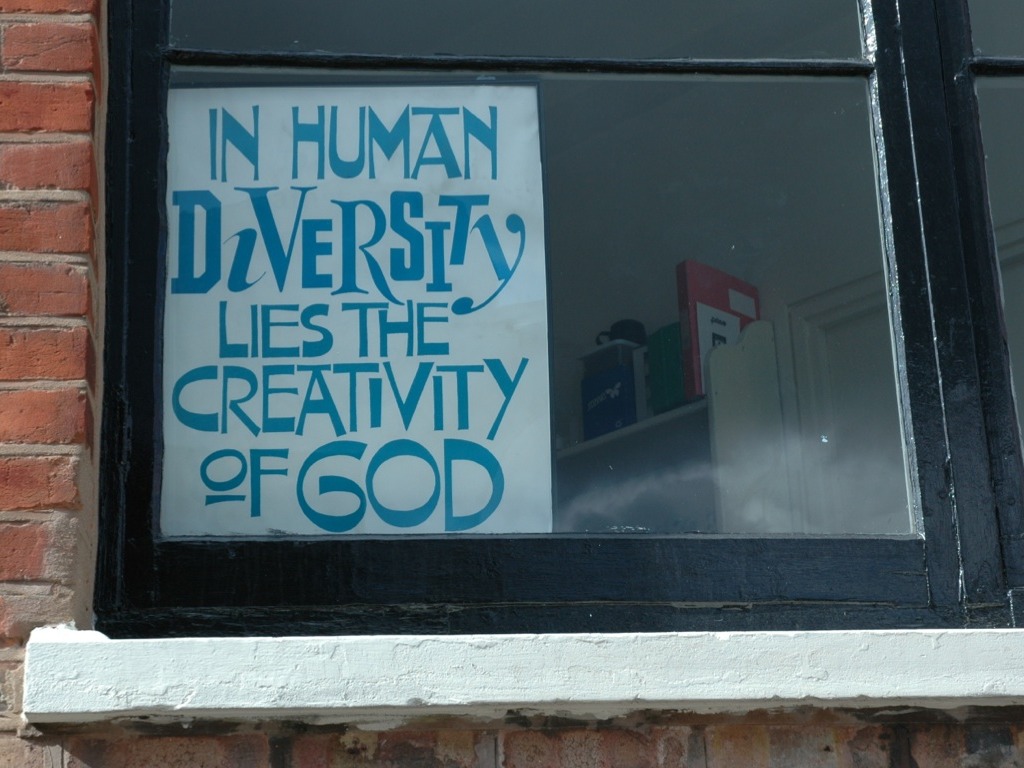 IN HUMAN
DiVERSITy
LIES THE
CREATiVITY
OF GOD